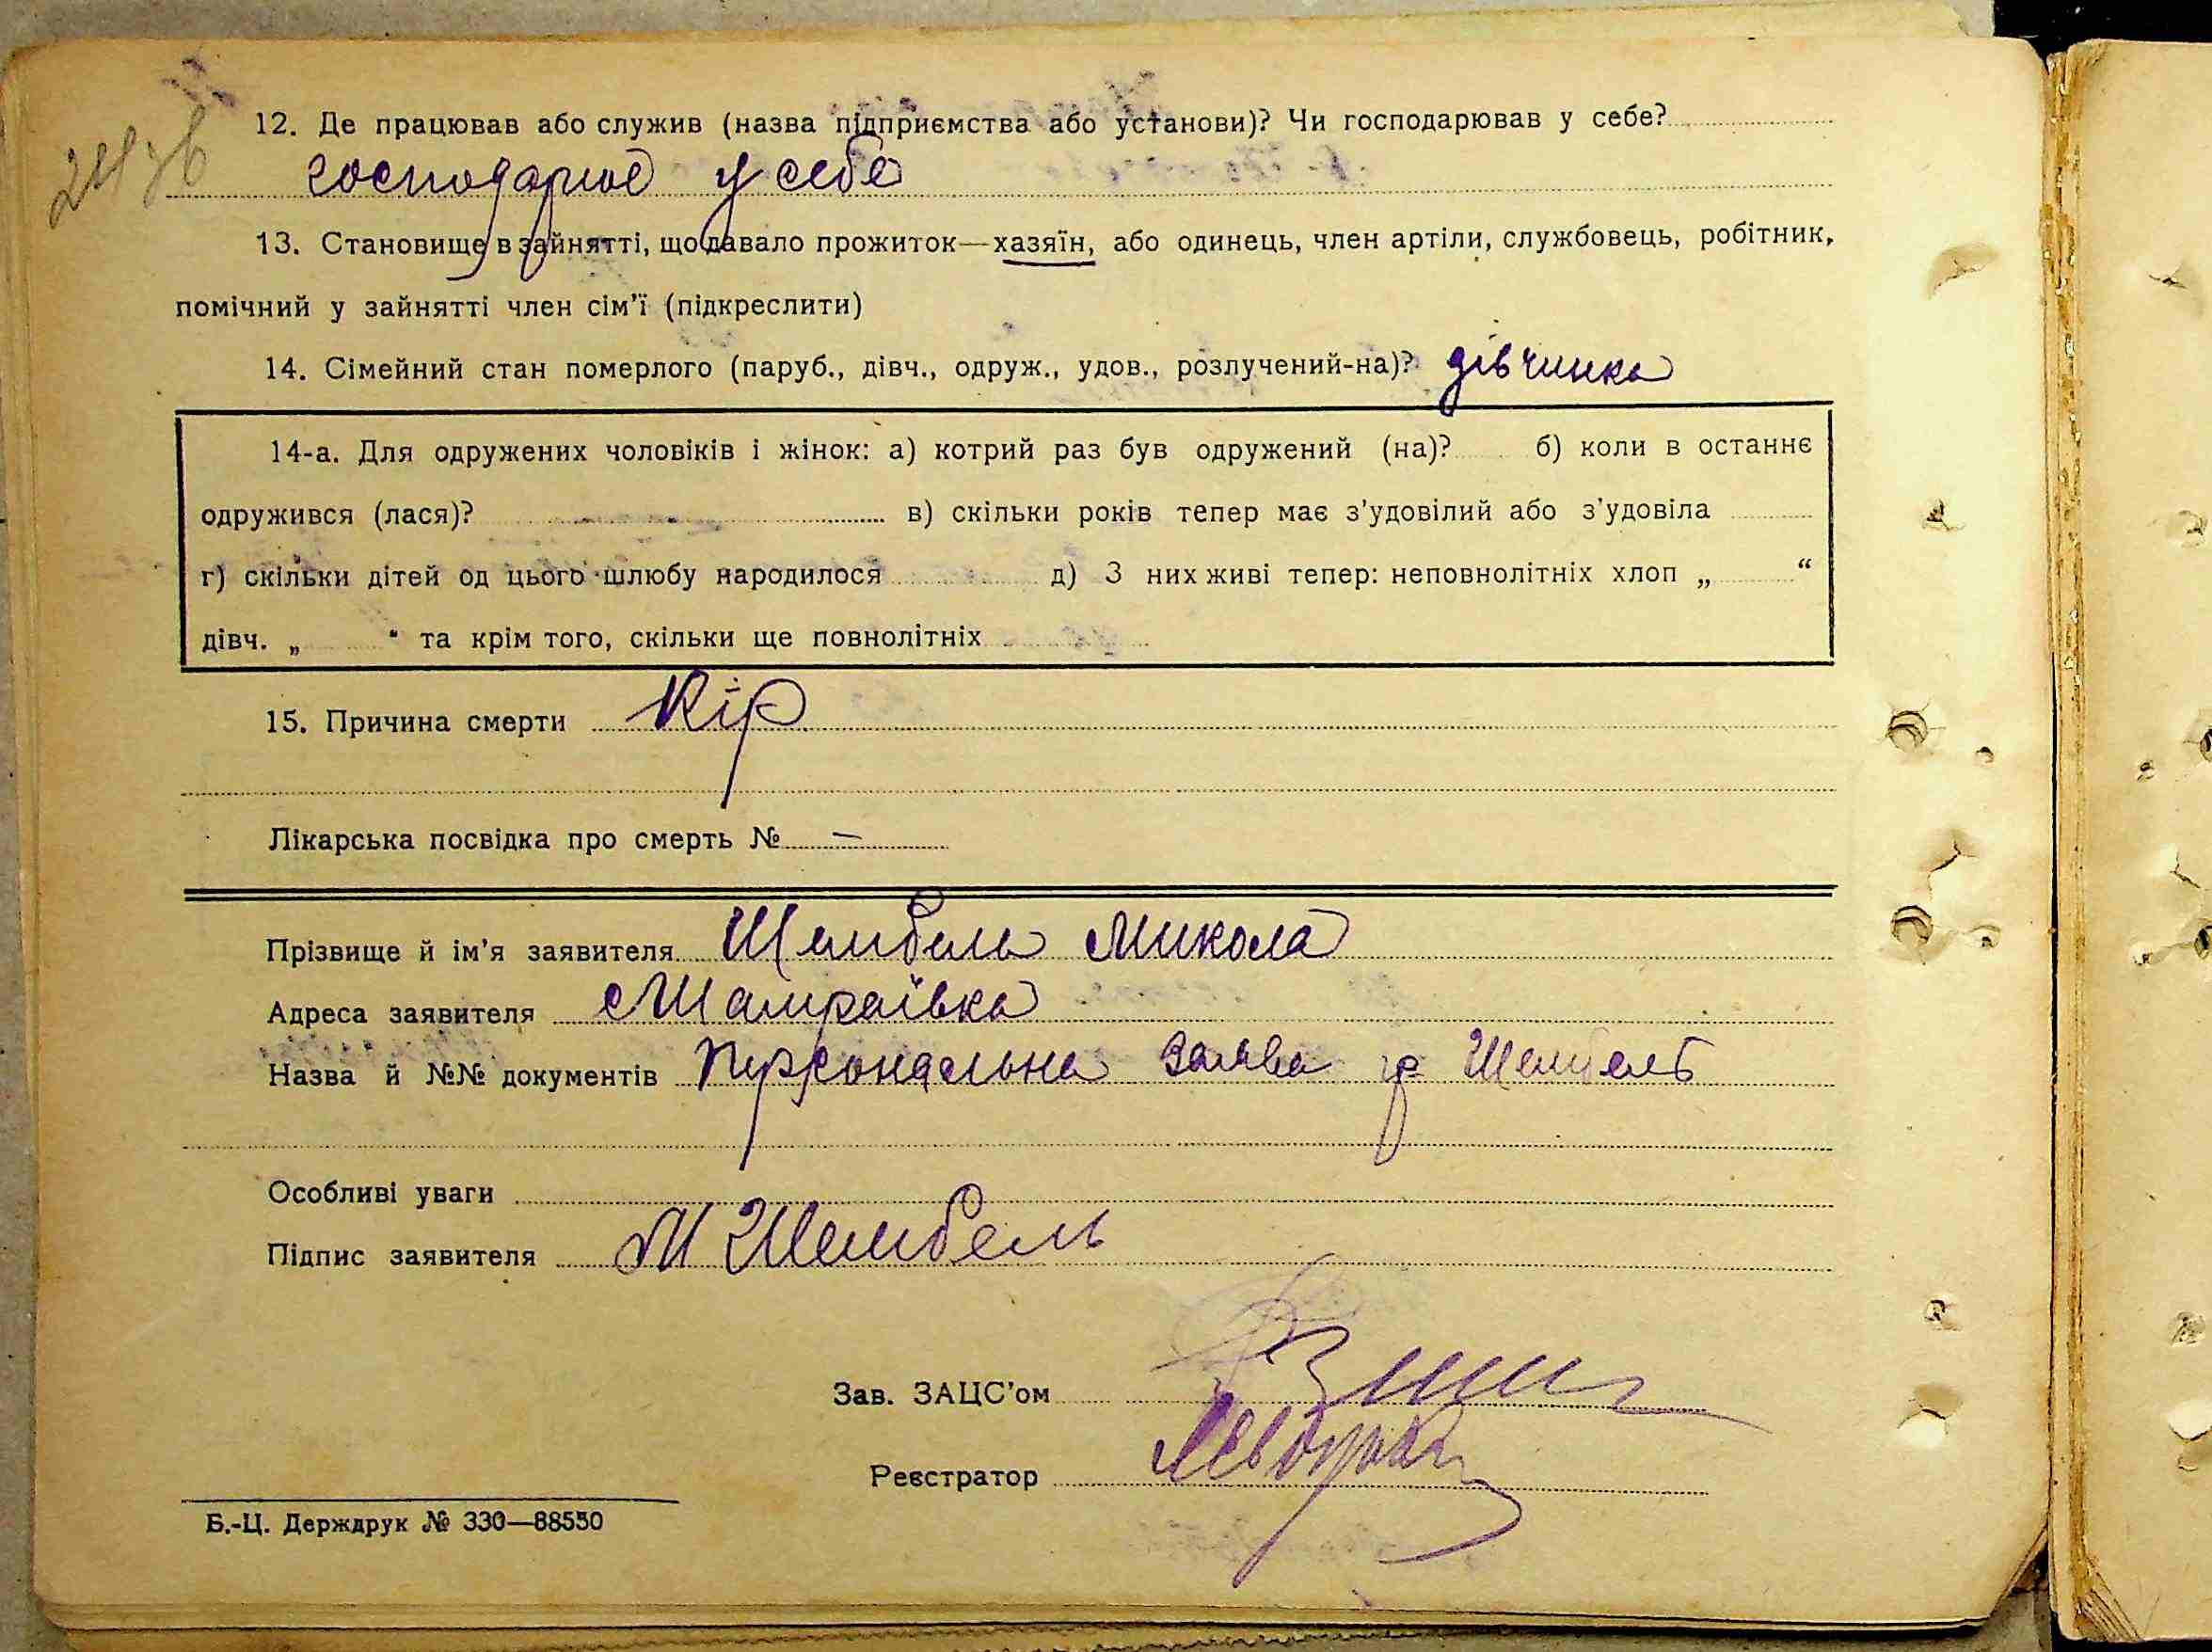 12. Де працював або служив (назва підприємства або установи)? Чи господарював у себе?
господарює у себе
13. Становище в зайнятті, що давало прожиток—хазяїн, або одинець, член артіли, службовець, робітник,
помічний у зайнятті член сім'ї (підкреслити)
14. Сімейний стан померлого (паруб., дівч., одруж., удов., розлучений-на)? дівчинка
14-а. Для одружених чоловіків і жінок: а) котрий раз був одружений (на)? б) коли в останнє
одружився (лася)? в) скільки років тепер має з'удовілий або з'удовіла
г) скільки дітей од цього шлюбу народилося д) З них живі тепер: неповнолітніх хлоп „ “
дівч. „ “ та крім того, скільки ще повнолітніх
15. Причина смерти Кір
Лікарська посвідка про смерть № —
Прізвище й ім'я заявителя Шембель Микола
Адреса заявителя с Шамраївка
Назва й №№ документів Персональна заява гр Шембель
Особливі уваги
Підпис заявителя М Шембель
Зав. ЗАЦС'ом
Реєстратор
Б.-Ц. Держдрук № 330—88550